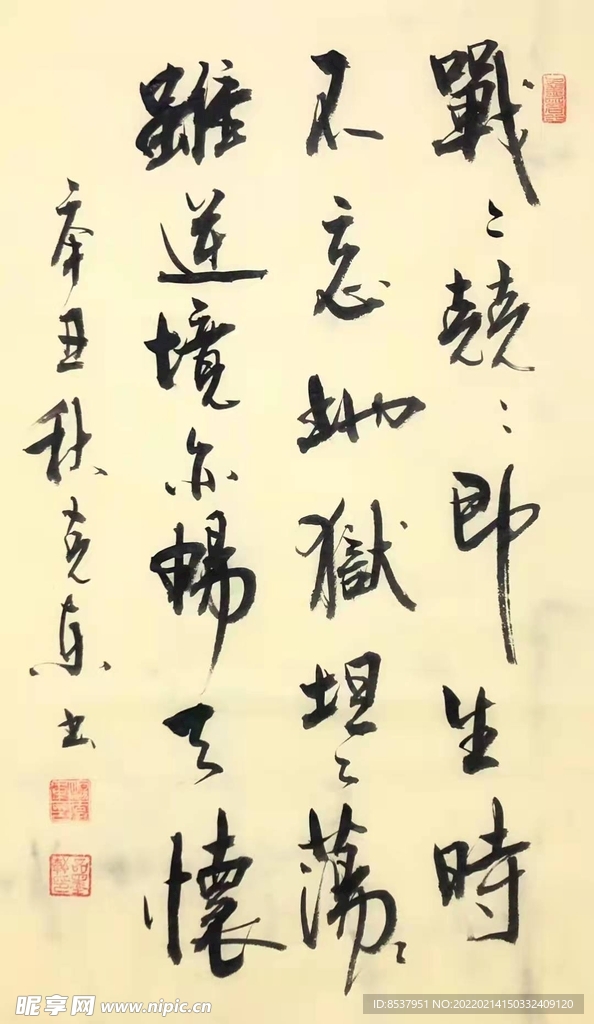 戰〻兢〻即生時
不忘地獄坦〻蕩〻
雖逆境亦暢天懷
辛丑秋克東书
昵享网 www.nipic.cn
ID:8537951 NO:20220214150332409120